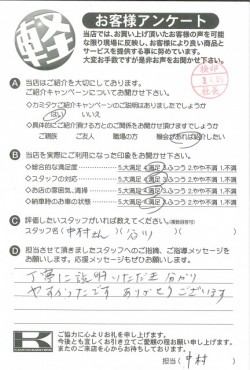 軽
お客様アンケート
当店では、お買い上げ頂いたお客様の声を可能
な限り現場に反映し、お客様により良い商品と
サービスを提供する事に努めています。
大変お手数ですが是非お声をお聞かせ下さい。
A 当店はご紹介を大切にしております。
ご紹介キャンペーンについてお聞かせ下さい。
◇カミタケご紹介キャンペーンのご説明はありましたでしょうか
はい いいえ
◇具体的にご紹介頂ける方とのご関係をお聞き頂けますでしょうか
ご親族 ご友人 職場の方 機会があれば紹介したい
B 当店を実際にご利用になった印象をお聞かせ下さい。
◇総合的な満足度 5.大満足 4.満足 3.ふつう 2.やや不満 1.不満
◇スタッフの対応 5.大満足 4.満足 3.ふつう 2.やや不満 1.不満
◇お店の雰囲気、清掃 5.大満足 4.満足 3.ふつう 2.やや不満 1.不満
◇納車時のお車の状態 5.大満足 4.満足 3.ふつう 2.やや不満 1.不満
C 評価したいスタッフがいれば教えてください。(複数回答可)
スタッフ名( 中村さん )( 谷川 )
D 担当させて頂きましたスタッフへのご指摘、ご指導メッセージを
お願いします。応援メッセージもぜひお願いします。
丁寧に説明いただき 分かり
やすかったです ありがとうございます
K
ご協力に心よりお礼を申し上げます。
今後とも宜しくお引き立てご愛顧の程お願い申し上げます。
またのご来店を心からお待ちしております。
担当( 中村 )